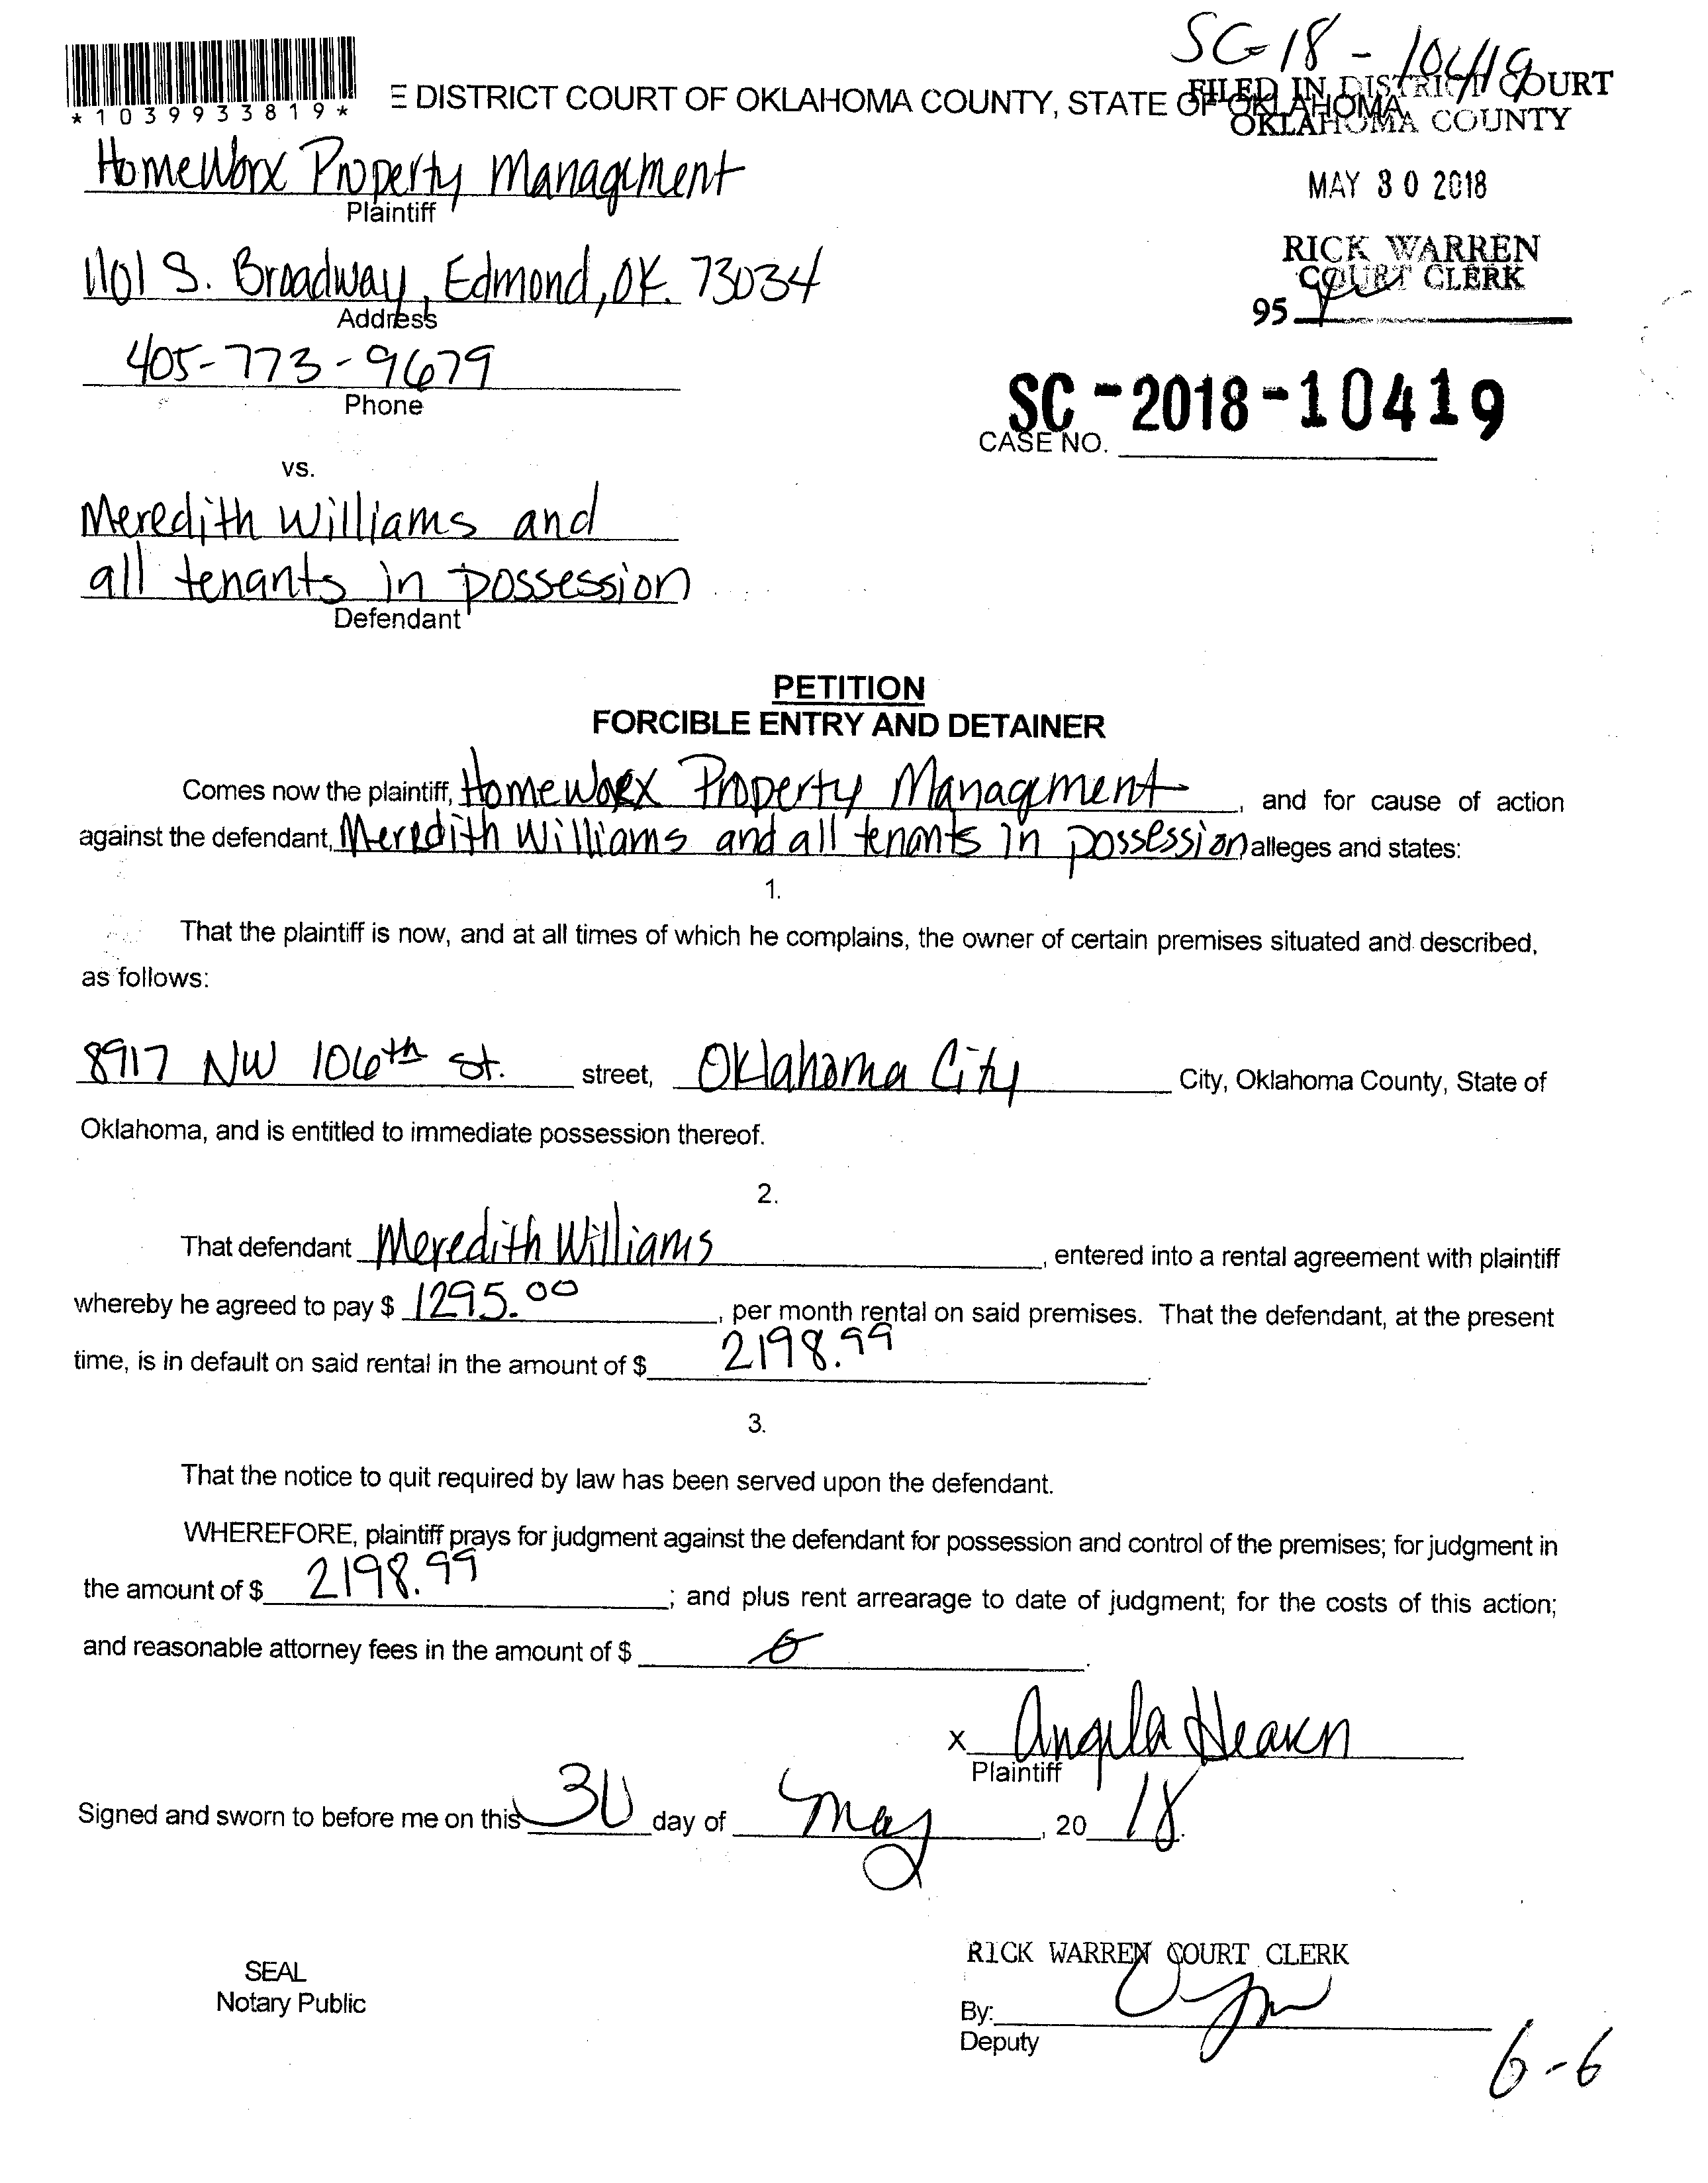 SC-18-10419
*1039933819*
E DISTRICT COURT OF OKLAHOMA COUNTY, STATE OF OKLAHOMA
FILED IN DISTRICT COURT
OKLAHOMA COUNTY
HomeWorx Property Management
Plaintiff
MAY 30 2018
1101 S. Broadway, Edmond, OK. 73034
Address
RICK WARREN
COURT CLERK
95
405-773-9679
Phone
SC-2018-10419
CASE NO.
vs.
Meredith Williams and
all tenants in possession
Defendant
PETITION
FORCIBLE ENTRY AND DETAINER
Comes now the plaintiff, HomeWorx Property Management, and for cause of action
against the defendant, Meredith Williams and all tenants in possession alleges and states:
1.
That the plaintiff is now, and at all times of which he complains, the owner of certain premises situated and described,
as follows:
8917 NW 106th St. street, Oklahoma City City, Oklahoma County, State of
Oklahoma, and is entitled to immediate possession thereof.
2.
That defendant Meredith Williams, entered into a rental agreement with plaintiff
whereby he agreed to pay $ 1295.00, per month rental on said premises. That the defendant, at the present
time, is in default on said rental in the amount of $ 2198.99.
3.
That the notice to quit required by law has been served upon the defendant.
WHEREFORE, plaintiff prays for judgment against the defendant for possession and control of the premises; for judgment in
the amount of $ 2198.99; and plus rent arrearage to date of judgment; for the costs of this action;
and reasonable attorney fees in the amount of $ 0.
X Angela Hearn
Plaintiff
Signed and sworn to before me on this 30 day of May, 20 18.
RICK WARREN COURT CLERK
SEAL
Notary Public
By:
Deputy
6-6